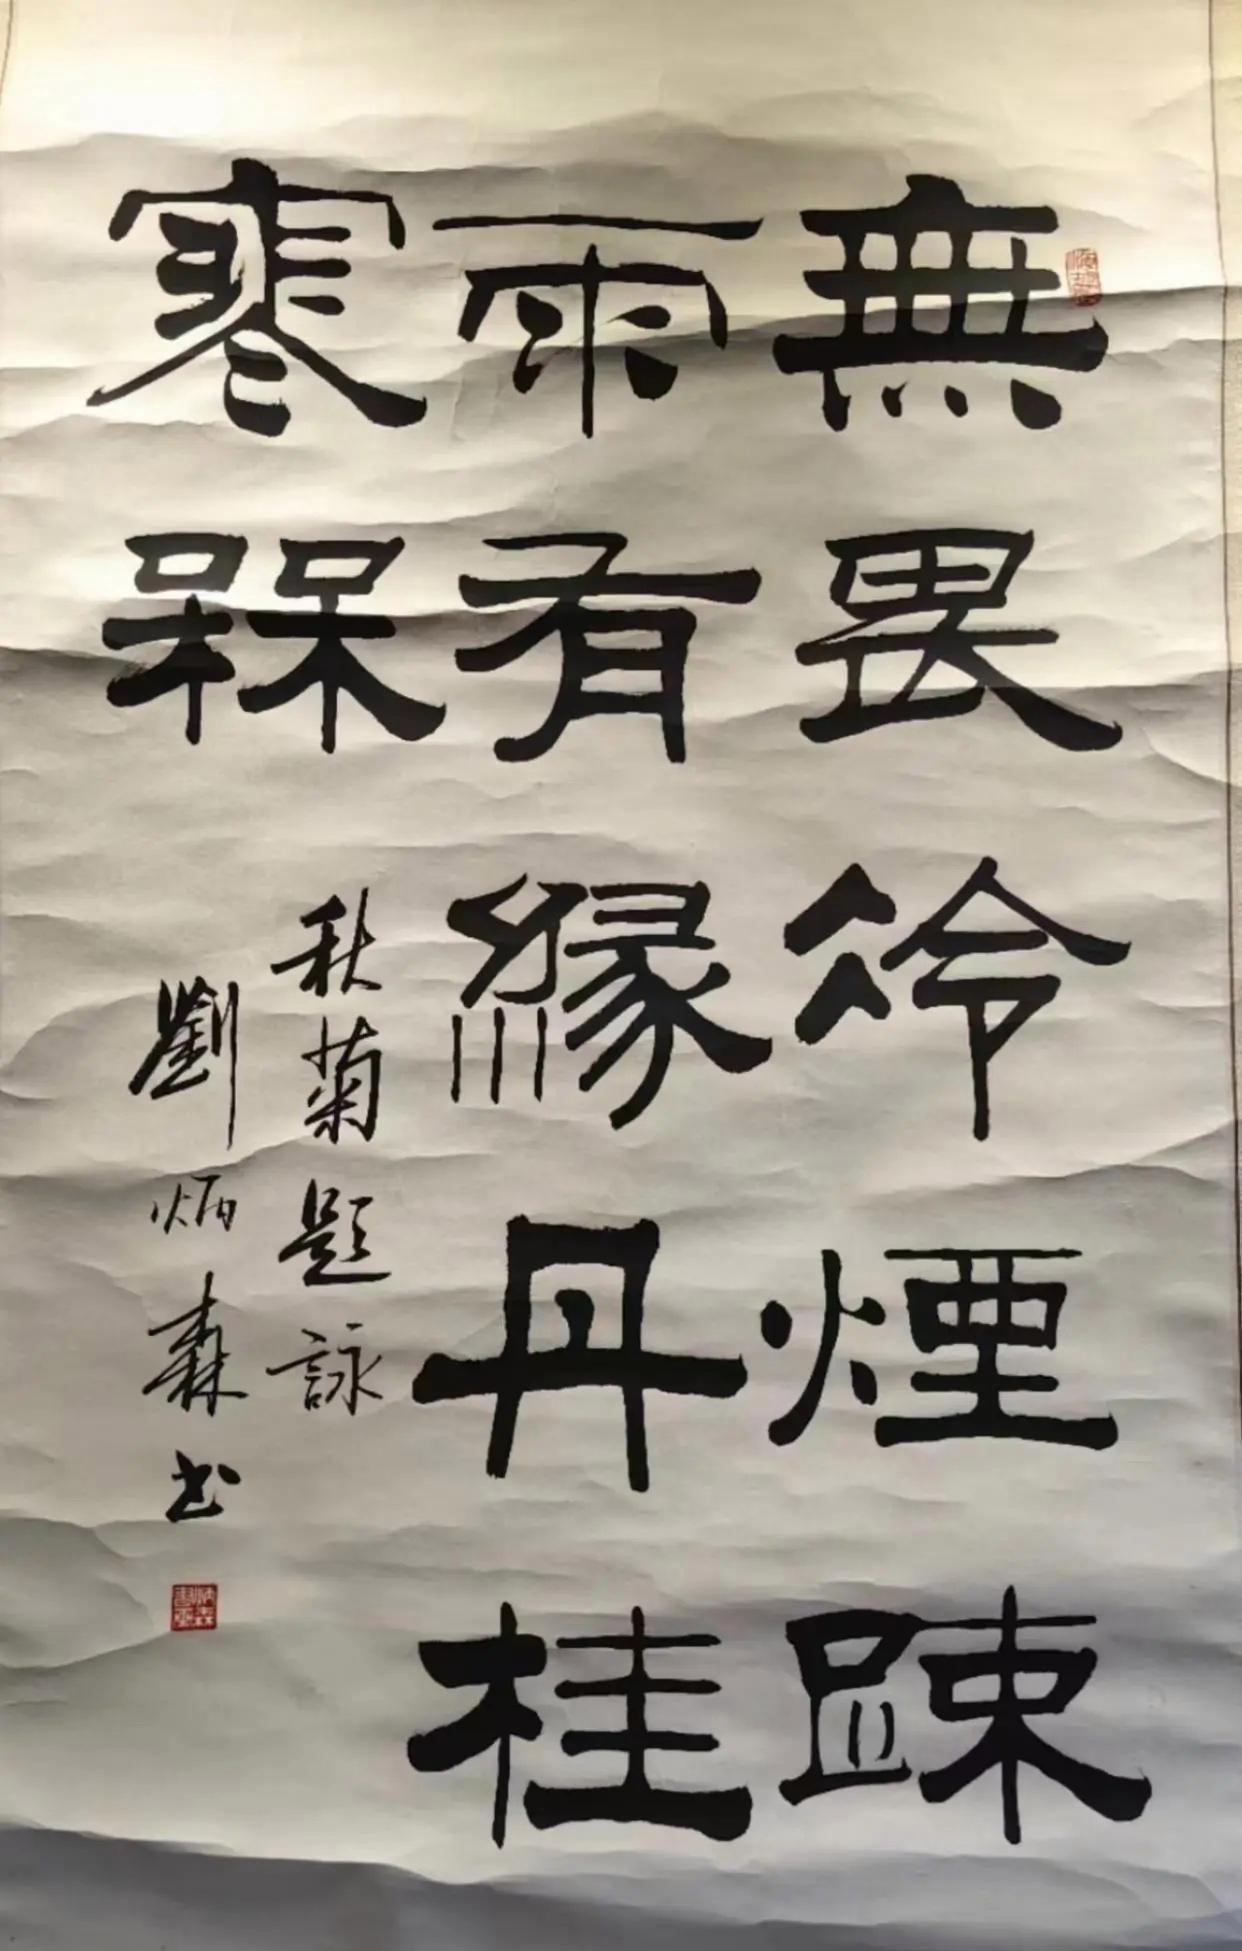 無畏冷煙疎
雨有緣丹桂
寒槑
秋菊題詠
劉炳森书